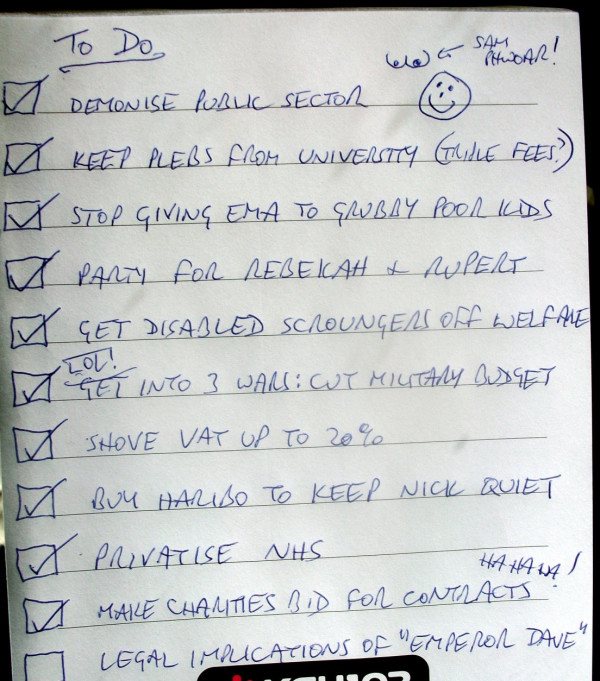 To Do
SAM
PHWOAR!
DEMONISE PUBLIC SECTOR
KEEP PLEBS FROM UNIVERSITY (TRIPLE FEES?)
STOP GIVING EMA TO GRUBBY POOR KIDS
PARTY FOR REBEKAH & RUPERT
GET DISABLED SCROUNGERS OFF WELFARE
LOL!
GET INTO 3 WARS: CUT MILITARY BUDGET
SHOVE VAT UP TO 20%
BUY HARIBO TO KEEP NICK QUIET
PRIVATISE NHS
HA HA HA!
MAKE CHARITIES BID FOR CONTRACTS
LEGAL IMPLICATIONS OF "EMPEROR DAVE"